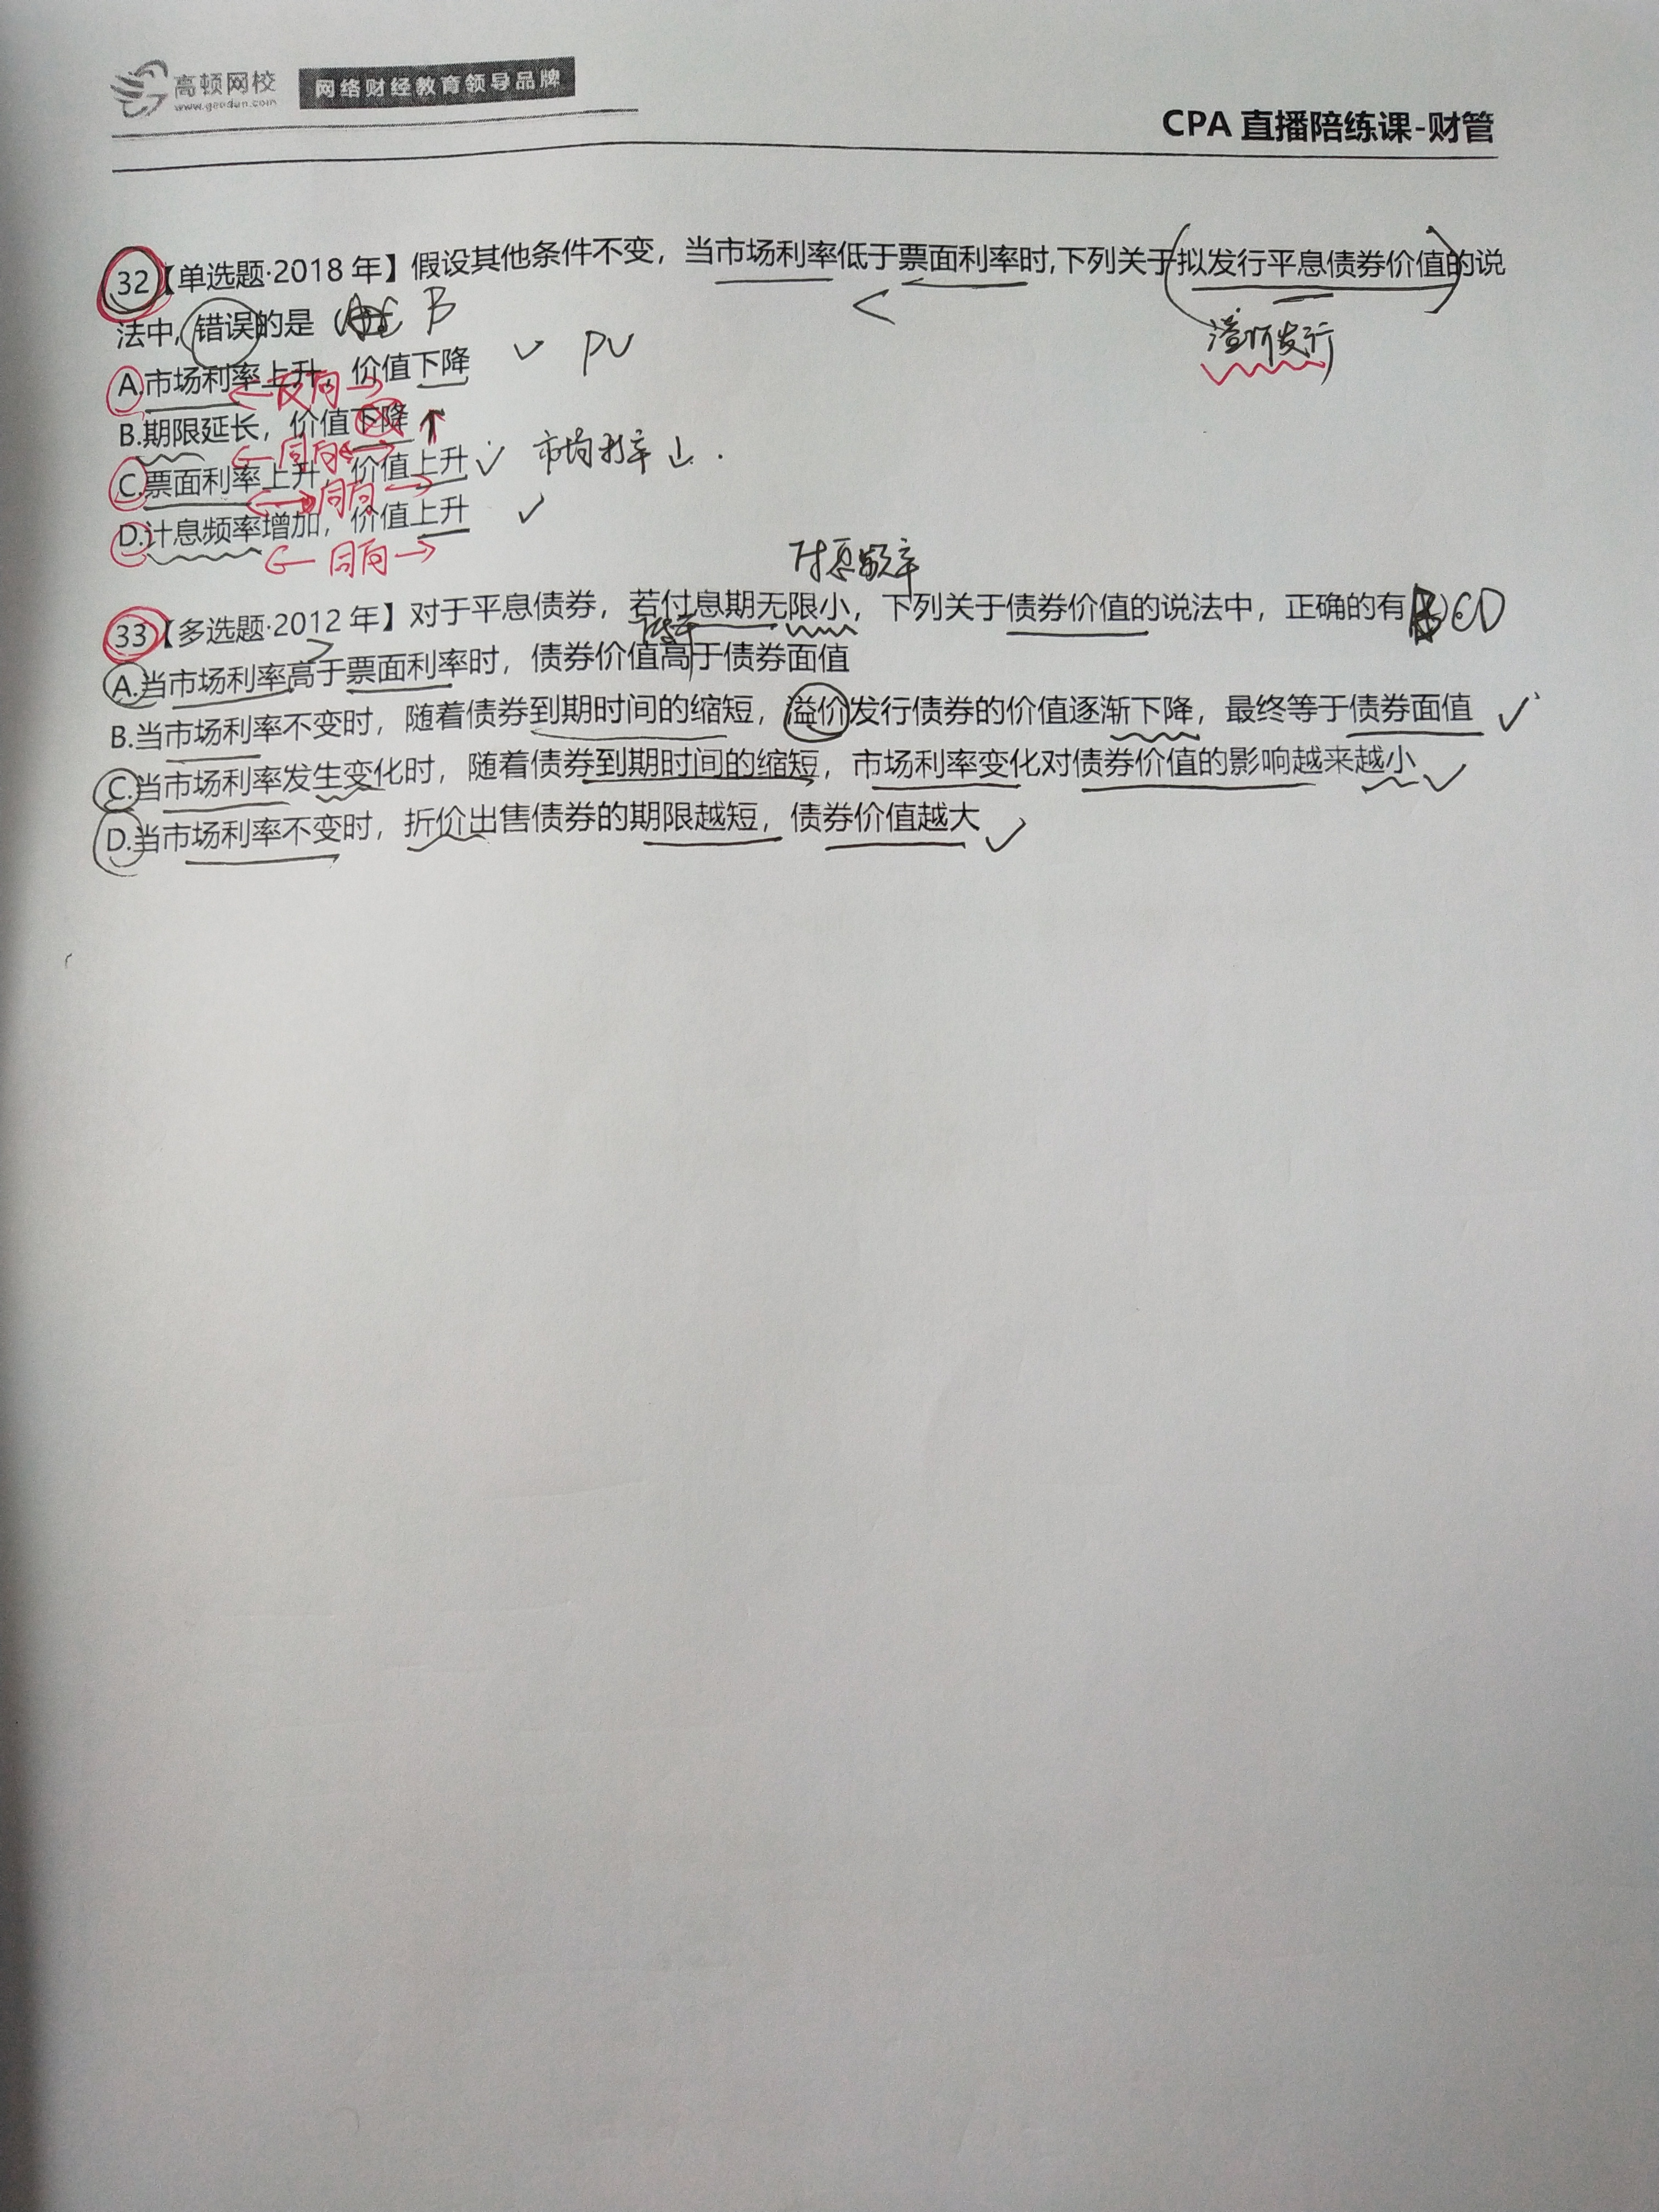 高顿网校
www.gaodun.com
网络财经教育领导品牌
CPA 直播陪练课-财管
32【单选题·2018 年】假设其他条件不变，当市场利率低于票面利率时,下列关于拟发行平息债券价值的说
<
法中, 错误的是 B
溢价发行
A.市场利率上升，价值下降 ✓ PV
反向
B.期限延长，价值下降 ↑
同向
C.票面利率上升，价值上升 ✓ 市场利率 ↓.
同向
D.计息频率增加，价值上升 ✓
同向
付息频率
33【多选题·2012 年】对于平息债券，若付息期无限小，下列关于债券价值的说法中，正确的有 B CD
>
A.当市场利率高于票面利率时，债券价值高于债券面值
B.当市场利率不变时，随着债券到期时间的缩短，溢价发行债券的价值逐渐下降，最终等于债券面值 ✓
C.当市场利率发生变化时，随着债券到期时间的缩短，市场利率变化对债券价值的影响越来越小 ✓
D.当市场利率不变时，折价出售债券的期限越短，债券价值越大 ✓